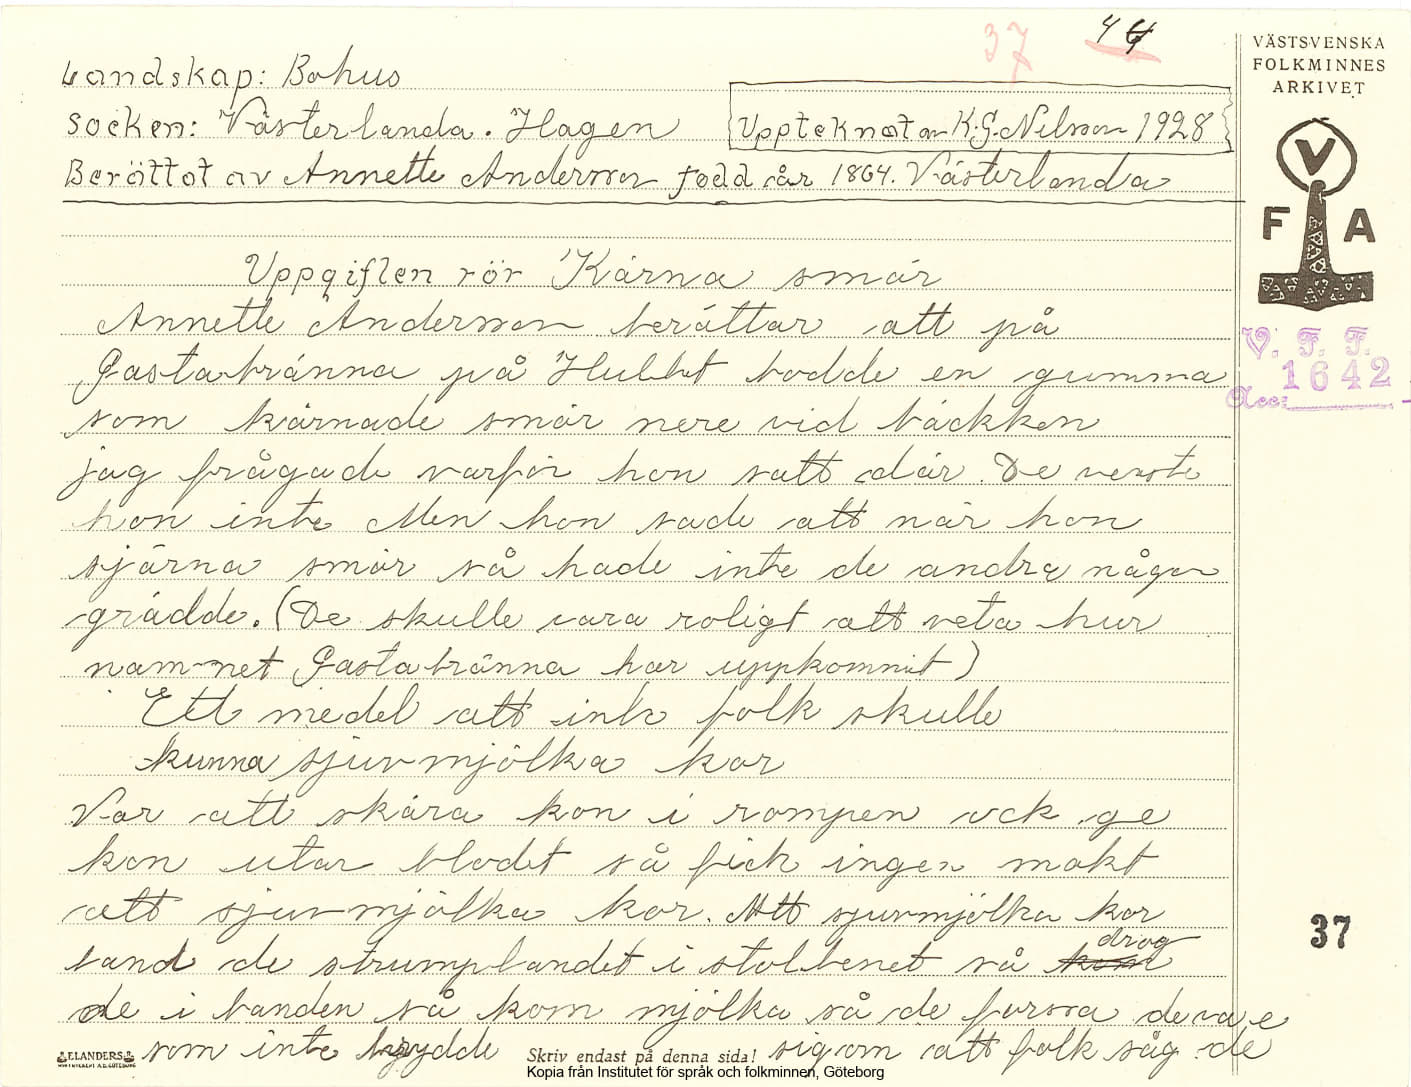 37 44
VÄSTSVENSKA
FOLKMINNES
ARKIVET
Landskap: Bohus
Socken: Västerlanda. Hagen Uppteknat av K.G. Nilsson 1928
Berättat av Annette Andersson född år 1864. Västerlanda
V
F A
Uppgiften rör Kärna smör
Annette Andersson berättar att på
Gastabränna på Hultet bodde en gumma
som kärnade smör nere vid bäckken
jag frågade varför hon satt där. De veste
hon inte Men hon sade att när hon
sjärna smör så hade inte de andra någon
grädde. (De skulle vara roligt att veta hur
namnet Gastabränna har uppkommit)
V. F. F.
Acc: 1642
Ett medel att inte folk skulle
kunna sjuvmjölka kor
Var att skära kon i rompen ock ge
kon utav blodet så fick ingen makt
att sjuvmjölka kor. Att sjuvmjölka kor
band de strumpbandet i stolbenet så kom drog
de i banden så kom mjölka så de forsa de va e
som inte brydde sig om att folk såg de
37
ELANDERS
Skriv endast på denna sida!
Kopia från Institutet för språk och folkminnen, Göteborg